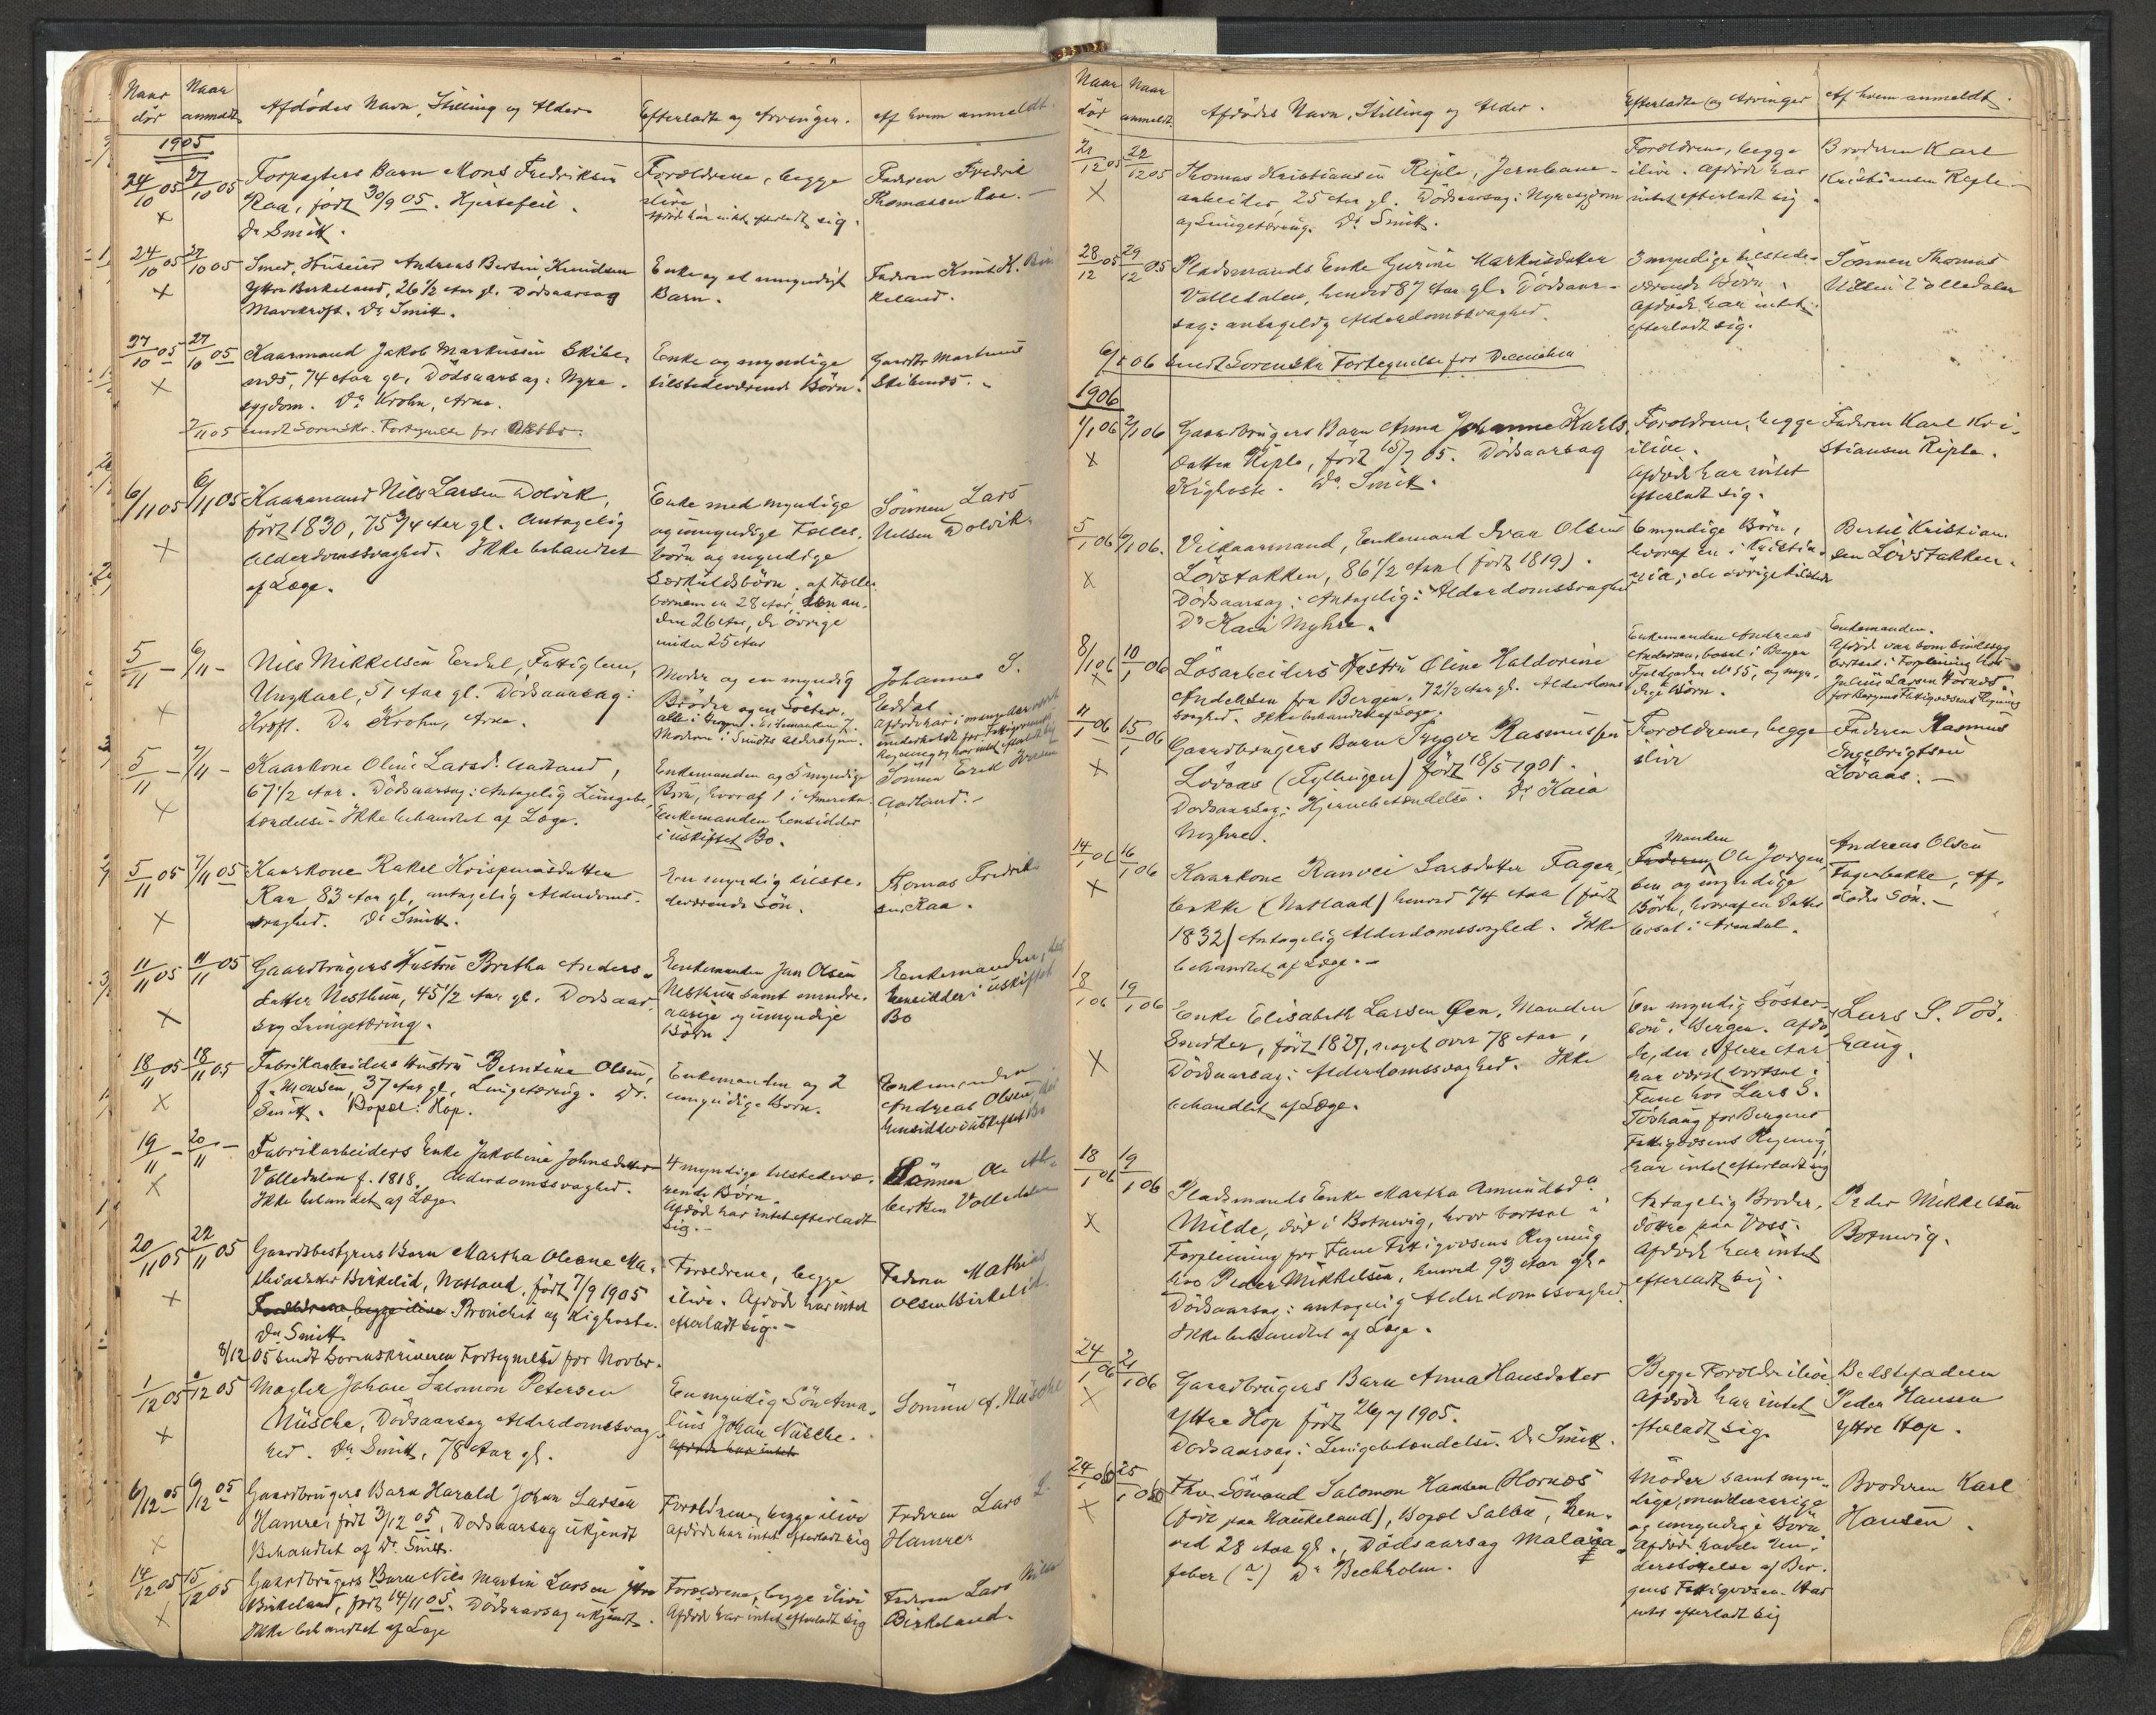 Naar
dör
Naar
anmeldt
Afdödes Navn, Stilling og Alder
Efterladte og Arvinger.
Af hvem anmeldt.
1905
24/10 05
27/10 05
Forpagters Barn Mons Fredriksen
Raa, födt 30/9 05. Hjertefeil.
Dr Smitt.
Forældrene, begge
ilive
Afdöde har intet efterladt sig.
Faderen Fredrik
Thomassen Raa. –
24/10 05
27/10 05
Smed, Huseier Andreas Bertin Knudsen
Ytre Birkeland, 26 1/2 Aar gl. Dödsaarsag
Mavekræft. Dr Smitt.
Enke og et umyndigt
Barn.
Faderen Knut K. Bir
keland.
27/10 05
27/10 05
Kaarmand Jakob Markussen Skibe-
næs, 74 Aar gl. Dödsaarsag: Nyre-
sygdom. Dr Krohn, Arne.
Enke og myndige
tilstedeværende Börn.
Gaardbr Martinus
Skibenæs.
2/11 05 sendt Sorenskr. Fortegnelse for Oktbr.
6/11 05
6/11 05
Kaarmand Nils Larsen Dolvik,
födt 1830, 75 3/4 Aar gl. Antagelig
Alderdomssvaghed. Ikke behandlet
af Læge.
Enke med myndige
og umyndige Fælles-
börn og myndige
Særkuldsbörn; af Fælles
börnene en 28 Aar, den an-
den 26 Aar, de övrige
under 25 Aar
Sönnen Lars
Nilsen Dolvik.
5/11 –
6/11 –
Nils Mikkelsen Erdal, Fattiglem,
Ungkarl, 51 Aar gl. Dödsaarsag:
Kræft. Dr Krohn, Arne.
Moder og en myndig
Broder og en Söster,
alle i Bergen.
Moderen i Sundts Alderdhjem.
Johannes S.
Erdal
Afdöde har i mange Aar vært
underholdt for Fattigvæsenets
Regning og har intet efterladt sig
5/11 –
7/11 –
Kaarkone Oline Larsd. Aadland,
67 1/2 Aar. Dödsaarsag: Antagelig Lungebe-
tændelse. Ikke behandlet af Læge.
Enkemanden og 5 myndige
Börn, hvoraf 1 i Amerika.
Enkemanden hensidder
i uskiftet Bo.
Sönnen Erik Iversen
Aadland. –
5/11 05
7/11 05
Kaarkone Rakel Krispinusdatter
Raa, 83 Aar gl, antagelig Alderdoms-
svaghed. Dr Smitt.
En myndig tilste-
deværende Sön.
Thomas Fredrik
sen Raa.
11/11 05
11/11 05
Gaardbrugers Hustru Britha Anders-
datter Nesttun, 45 1/2 Aar gl. Dödsaar
sag Lungetæring.
Enkemanden Jan Olsen
Nesttun samt mindre-
aarige og umyndige
Börn.
Enkemanden, der
hensidder i uskiftet
Bo
18/11 05
18/11 05
Fabrikarbeiders Hustru Berntine Olsen,
f. Monsen, 37 Aar gl, Lungetæring. Dr.
Smitt. Bopæl: Hop.
Enkemanden og 2
umyndige Börn.
Enkemanden
Andreas Olsen der
hensidder i uskiftet Bo
19/11 –
20/11 –
Fabrikarbeiders Enke Jakobine Johnsdatter
Valledalen f. 1818. Alderdomssvaghed.
Ikke behandlet af Læge
4 myndige tilstedevæ-
rende Börn.
Afdöde har intet efterladt
sig. –
Sönnen Ole Al-
bertsen Valledalen
20/11 05
22/11 05
Gaardsbestyrers Barn Martha Oleane Ma-
thiasdatter Birkelid, Natland, födt 7/9 1905
Forældrene, begge ilive Bronchit og Kighoste.
Dr Smitt.
Forældrene, begge
ilive. Afdöde har intet
efterladt sig. –
Faderen Mathias
Olsen Birkelid.
8/12 05 sendt Sorenskriveren Fortegnelse for Novbr.
1/12 05
2/12 05
Mægler Johan Salomon Petersen
Müsche, Dödsaarsag Alderdomssvag-
hed. Dr Smitt, 78 Aar gl.
En myndig Sön Ama-
lius Johan Müsche.
Afdöde har intet
Sönnen A. Müsche
6/12 05
6/12 05
Gaardbrugers Barn Harald Johan Larsen
Hamre, födt 3/12 05, Dödsaarsag ukjendt
Behandlet af Dr. Smitt.
Forældrene, begge ilive
Afdöde har intet efterladt sig
Faderen Lars L.
Hamre
14/12 05
15/12 05
Gaardbrugers Barn Nils Martin Larsen Ytre
Birkeland, födt 14/11 05. Dödsaarsag ukjendt.
Ikke behandlet af Læge
Forældrene, begge ilive
Afdöde har intet efterladt sig
Faderen Lars Nilsen
Birkeland.
Naar
dör
Naar
anmeldt.
Afdödes Navn, Stilling og Alder.
Efterladte og Arvinger
Af hvem anmeldt.
21/12 05
22/12 05
Thomas Kristiansen Riple, Jernbane-
arbeider 25 Aar gl. Dödsaarsag: Nyresygdom
og Lungetæring. Dr Smitt.
Forældrene, begge
ilive. Afdöde har
intet efterladt sig.
Broderen Karl
Kristiansen Riple
28/12 05
29/12 05
Pladsmands Enke Gurine Markusdatter
Valledalen, henved 87 Aar gl. Dödsaar-
sag: antagelig Alderdomssvaghed.
3 myndige tilstede-
værende Börn.
Afdöde har intet
efterladt sig.
Sönnen Thomas
Valledalen
6/1 06 sendt Sorenskr Fortegnelse for December
1906
1/1 06
2/1 06
Gaardbrugers Barn Anna Johanne Karls-
datter Riple, födt 15/7 05. Dödsaarsag
Kighoste. Dr. Smitt.
Forældrene, begge
ilive.
Afdöde har intet
efterladt sig.
Faderen Karl Kri-
stiansen Riple.
5/1 06
6/1 06.
Vilkaarmand, Enkemand Ivar Olsen
Lövstakken, 86 1/2 Aar (födt 1819).
Dödsaarsag: Antagelig: Alderdomssvaghed
Dr Kaia Myhre.
6 myndige Börn,
hvoraf en i Kristia-
nia; de övrige tilstede
Bertil Kristian-
sen Lövstakken.
8/1 06
10/1 06
Lösarbeiders Hustru Oline Haldorine
Andersen fra Bergen. 72 1/2 Aar gl. Alderdoms
svaghed. Ikke behandlet af Læge.
Enkemanden Andreas
Andersen, bosat i Bergen
Fjeldgaden No 15, og myn-
dige Börn.
Enkemanden.
Afdöde var som sindssyg
bortsat i Forpleining hos
Julius Larsen Hornæs
for Bergens Fattigvæsens Regning
11/1 06
15/1 06
Gaardbrugers Barn Trygve Rasmussen
Lövaas (Fyllingen) födt 18/5 1901.
Dödsaarsag: Hjernebetændelse. Dr Kaia
Myhre.
Forældrene, begge
ilive
Faderen Rasmus
Engebrigtsen
Lövaas. –
14/1 06
16/1 06
Kaarkone Ranvei Larsdatter Fager-
bakke (Natland) henved 74 Aar (födt
1832) Antagelig Alderdomssvaghed. Ikke
behandlet af Læge. –
Manden
Faderen Ole Jörgen-
sen og myndige
Börn, hvoraf en Datter
bosat i Arendal.
Andreas Olsen
Fagerbakke, Af-
dödes Sön. –
18/1 06
19/1 06
Enke Elisabeth Larsen Öen, Manden
Snedker, födt 1827, noget over 78 Aar,
Dödsaarsag: Alderdomssvaghed. Ikke
behandlet af Læge.
En myndig Söster-
sön i Bergen. Afdö-
de, der i flere Aar
har været bortsat i
Fane hos Lars S.
Töshaug for Bergens
Fattigvæsens Regning
har intet efterladt sig
Lars S. Tös-
haug.
18/1 06
19/1 06
Pladsmands Enke Martha Amundsdr
Milde, död i Botnevig, hvor bortsat i
Forpleining for Fane Fattigvæsens Regning
hos Peder Mikkelsen, henved 93 Aar gl.
Dödsaarsag: antagelig Alderdomssvaghed.
Ikke behandlet af Læge.
Antagelig Broder-
döttre paa Voss.
Afdöde har intet
efterladt sig.
Peder Mikkelsen
Botnevig.
24/1 06
Gaardbrugers Barn Anna Hansdatter
Ytre Hop födt 26/7 1905.
Dödsaarsag: Lungebetændelse. Dr Smitt.
Begge Forældre ilive
Afdöde har intet
efterladt sig
Bedstefaderen
Peder Hansen
Ytre Hop.
24/1 06
25/1 06
Fhv. Sömand Salomon Hansen Hornæs
(födt paa Haukeland), Bopæl Salbu, hen-
ved 28 Aar gl., Dödsaarsag Malaria
feber (?) Dr Bechholm.
Moder samt myn-
dige, mindreaarige
og umyndige
Afdöde havde Un-
derstöttelse af Ber-
gens Fattigvæsen. Har
intet efterladt sig
Broderen Karl
Hansen.